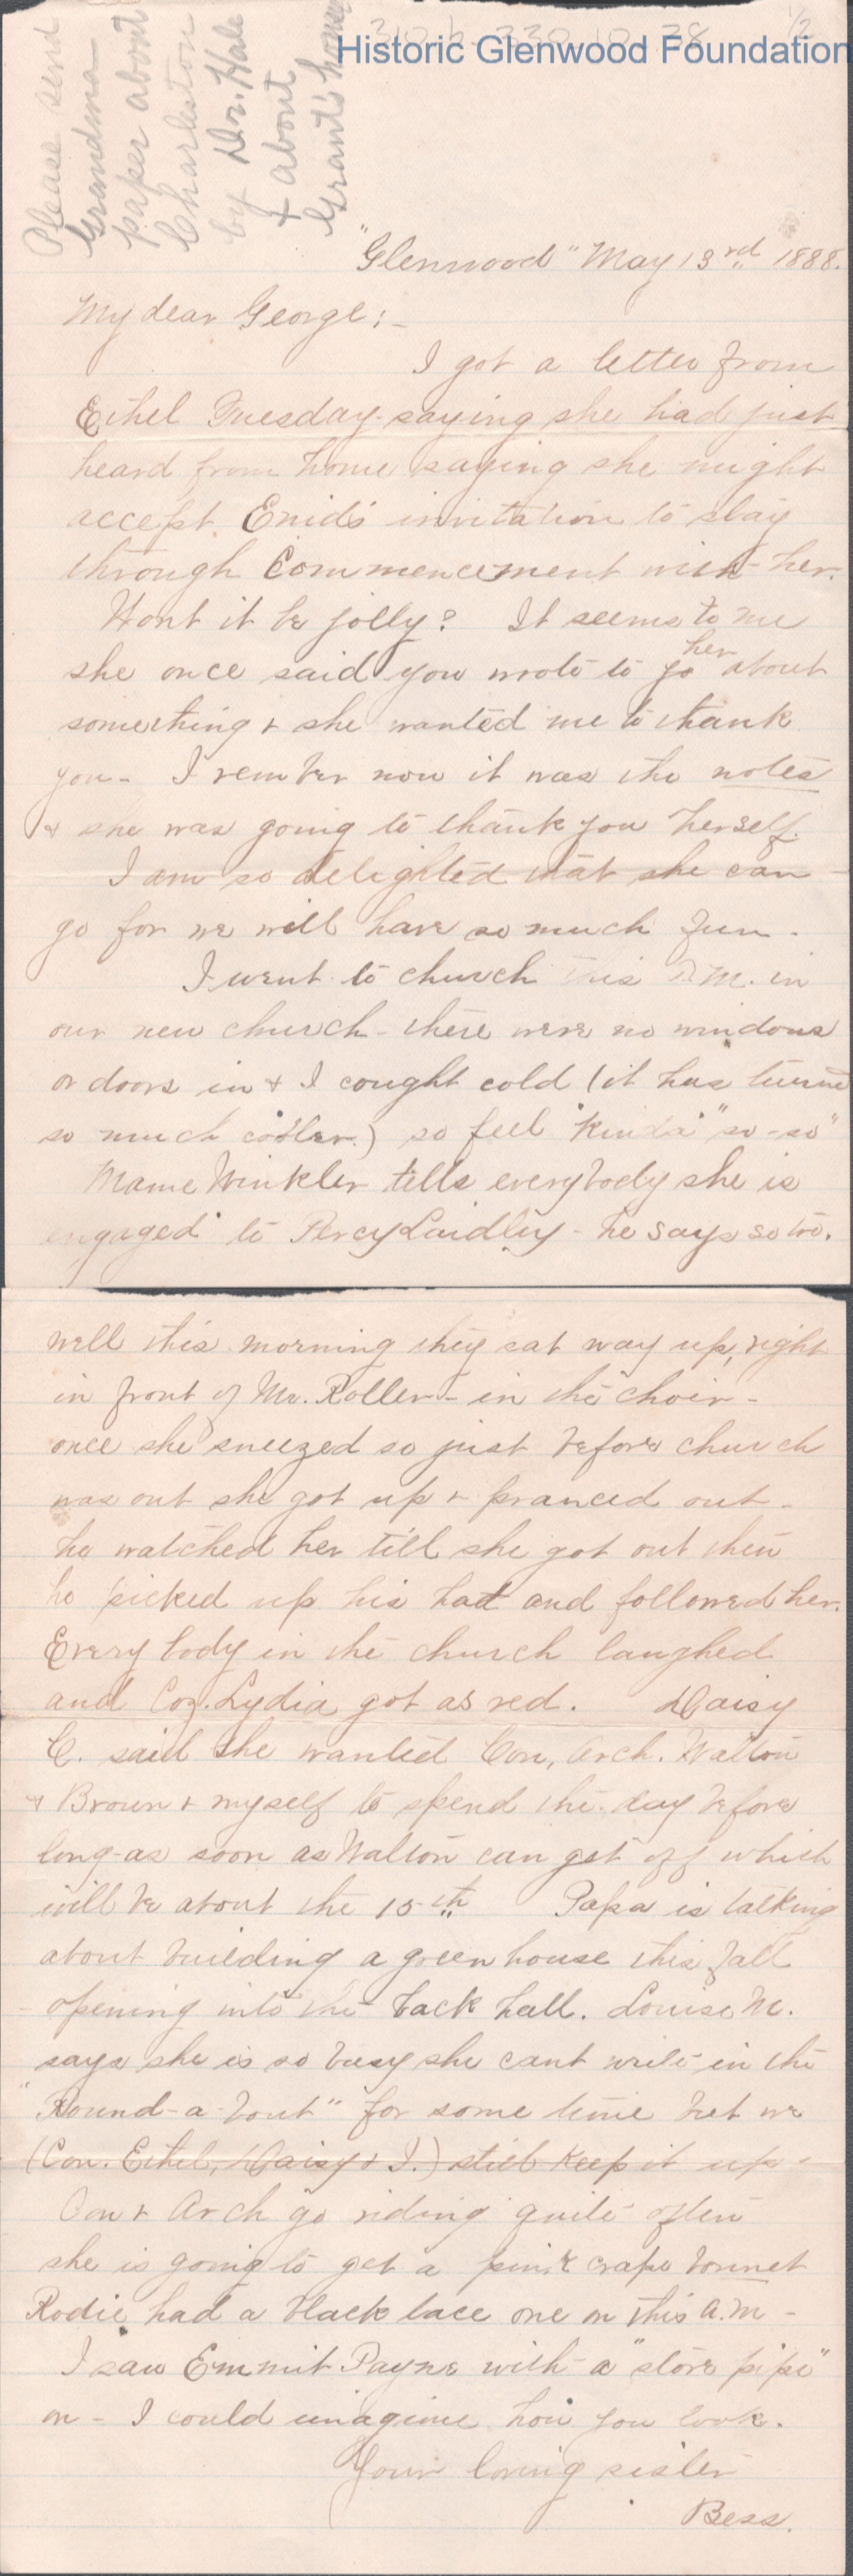 310 b. 330. 10. 28 1/2
Historic Glenwood Foundation
Please send
Grandma
paper about
Charleston
by Dr. Hale
& about
Grant's home
"Glenwood" May 13rd 1888.
My dear George:-
I got a letter from
Ethel Tuesday saying she had just
heard from home saying she might
accept Enid's invitation to stay
through Commencement with her.
Wont it be jolly? It seems to me
she once said you wrote to her about
something & she wanted me to thank
you - I rember now it was the notes
& she was going to thank you herself.
I am so delighted that she can
go for we will have so much fun.
I went to church this A.M. in
our new church - there were no windows
or doors in & I cought cold (it has turned
so much cooler.) so feel "kinda" "so-so"
Mame Winkler tells everybody she is
engaged to Percy Laidley - he says so too.
well this morning they sat way up, right
in front of Mr. Roller - in the choir -
once she sneezed so just before church
was out she got up & pranced out -
he watched her till she got out then
he picked up his hat and followed her.
Every body in the church laughed
and Coz. Lydia got as red. Daisy
C. said she wanted Con, Arch. Walton
& Brown & myself to spend the day before
long - as soon as Walton can get off which
will be about the 15th Papa is talking
about building a green house this fall
opening into the back hall. Louise M.
says she is so busy she cant write in the
"Round-a-bout" for some time but we
(Con. Ethel, Daisy & I.) still keep it up -
Con & Arch go riding quite often
she is going to get a pink crape bonnet
Rodie had a black lace one on this A.M -
I saw Emmit Payne with a "stove pipe"
on - I could imagine how you look.
Your loving sister
Bess.